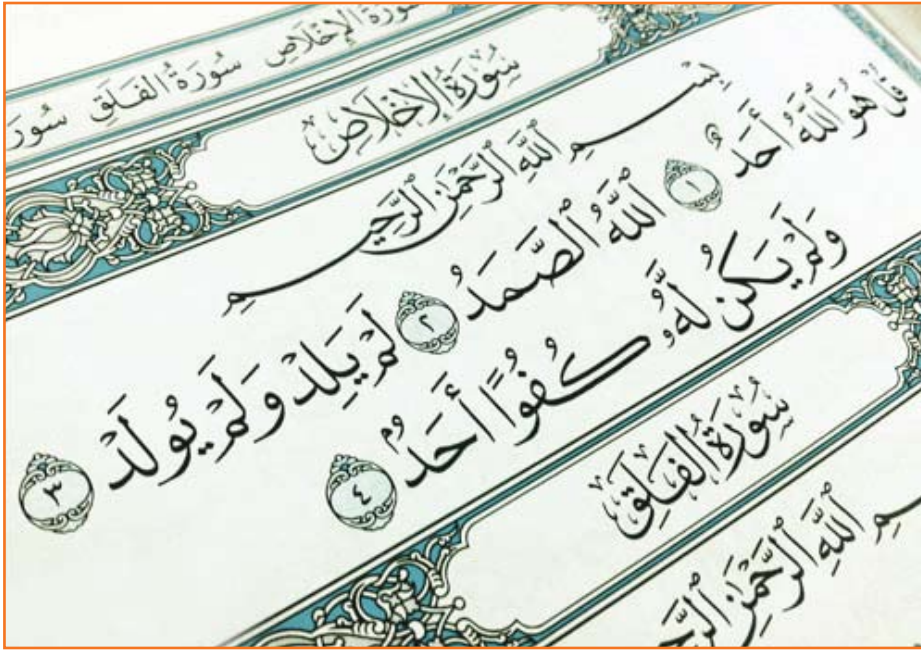 سُورَةُ الإِخْلَاصِ سُورَةُ الفَلَقِ
سُورَةُ الإِخْلَاصِ
بِسْمِ ٱللَّهِ ٱلرَّحْمَٰنِ ٱلرَّحِيمِ
قُلْ هُوَ ٱللَّهُ أَحَدٌ ١ ٱللَّهُ ٱلصَّمَدُ ٢ لَمْ يَلِدْ وَلَمْ يُولَدْ ٣
وَلَمْ يَكُن لَّهُۥ كُفُوًا أَحَدٌۢ ٤
سُورَةُ الفَلَقِ
ٱللَّهِ ٱلرَّحْمَٰنِ